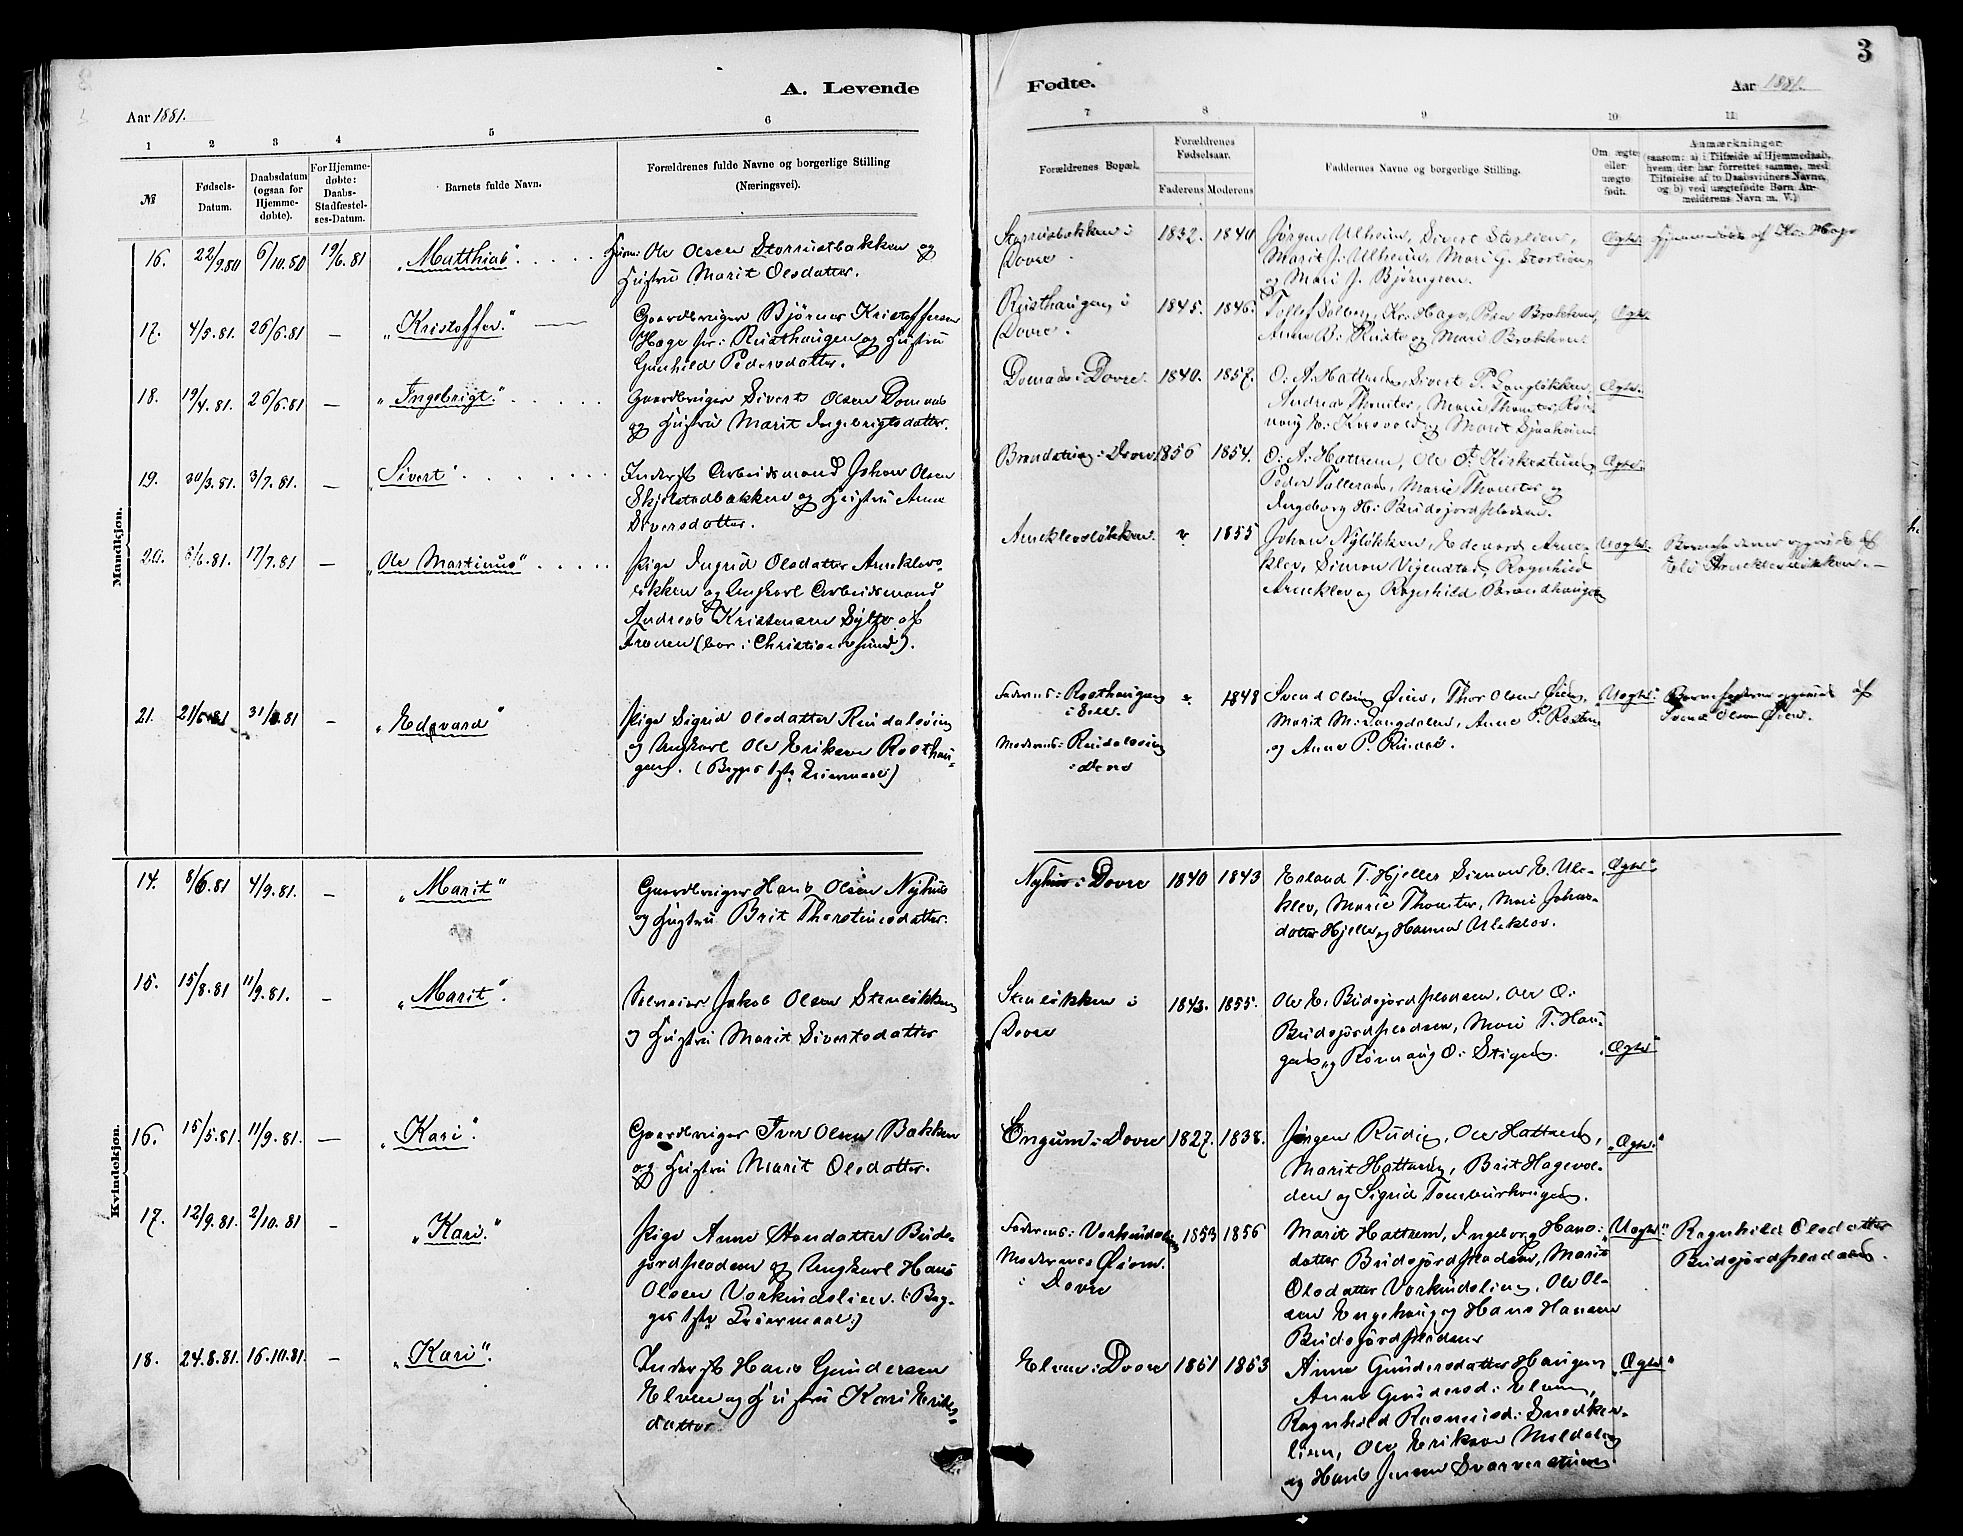 3
A. Levende
Fødte.
Aar 1881.
Aar 1881.
1 2 3 4 5 6
7 8 9 10 11
№
Fødsels-Datum.
Daabsdatum (ogsaa for Hjemmedøbte).
For Hjemmedøbte: Daabs-Stadfæstelses-Datum.
Barnets fulde Navn.
Forældrenes fulde Navne og borgerlige Stilling
(Næringsvei).
Forældrenes Bopæl.
Forældrenes Fødselsaar.
Faderens Moderens
Faddernes Navne og borgerlige Stilling.
Om ægte eller uægte født.
Anmærkninger
(saasom: a) i Tilfælde af Hjemmedaab, hvem der har forrettet samme, med Tilføielse af to Daabsvidners Navne, og b) ved uægtefødte Børn Anmelderens Navn m. V.)
Mandkjøn.
16. 22/9.80 6/10.80 19/6.81 "Matthias"
Ole Olsen Storrustbakken og
Hustru Marit Olsdatter.
Storrustbakken i
Dovre.
1832. 1840
Jørgen Ulheim, Sivert Storlien,
Marit J. Ulheim, Mari J. Storlien
og Mari J. Bjørngren.
Ægte
Hjemmedøbt af Kr. Hage
17. 4/5.81. 26/6.81 — "Kristoffer."
Gaardbruger Bjørner Kristoffersen
Hage fr: Rusthaugen og Hustru
Gunhild Pedersdatter.
Rusthaugen i
Dovre.
1845. 1846.
Tollef Solberg, Kr. Hage, Peder Brækken,
Anne B. Ruste og Mari Brækken
Ægte
18. 19/4.81. 26/6.81 — "Ingebrigt."
Gaardbruger Sivert Olsen Domaas
og Hustru Marit Ingebrigtsdatter.
Domaas i Dovre.
1840. 1857.
O. A. Hattrem, Sivert P. Langløkken,
Andreas Thomter, Marie Thomter, Røn-
naug E. Korsvold og Marit Sjaaheim
Ægte.
19. 30/3.81. 3/7.81. — "Sivert"
Inderst Arbeidsmand Johan Olsen
Skjelstadbakken og Hustru Anne
Siversdatter.
Dovre.
1856 1854.
O. A. Hattrem, Ole Kirkestuen,
Peder Talleraas, Marie Thomter og
Ingborg H. Budsjordpladsen.
Ægte
20. 6/6.81. 17/7.81 — "Ole Martinus"
Pige Ingrid Olsdatter Arneklevs-
løkken og Ungkarl Arbeidsmand
Andreas Kristensen Sylte af
Frænen (bor i Christiansund).
Arneklevsløkken.
1855
Johan Nyløkken, Edevard Arne-
klev, Simon Vigenstad, Ragnhild
Arneklev og Ragnhild Brændhaugen
Uægte.
Barnefaderen opgivet af
Eli Arneklevsløkken. —
21. 21/6.81 31/7.81 — "Edevard"
Pige Sigrid Olsdatter Rudsløien
og Ungkarl Ole Eriksen Rosthau-
gen. (Begges 1ste Leiermaal)
Faderens: Rosthaugen
i Sell.
Moderens: Rudsløien
i Dovre
1848
Svend Olsen Øien, Thor Olsen Øien,
Marit M. Langdalen, Anne P. Rosten
og Anne P. Rusten.
Uægte.
Barnefaderen opgivet af
Svend Olsen Øien.
Kvindekjøn.
14. 8/6.81 4/9.81. — "Marit"
Gaardbruger Hans Olsen Nyhus
og Hustru Brit Thorstinsdatter.
Nyhus i Dovre
1840 1843
Erland T. Hjelle, Simon E. Ule-
klev, Marie Thomter, Mari Johans-
datter Hjelle og Hanna Uleklev.
Ægte"
15. 15/8.81 11/9.81. — "Marit".
Selveier Jakob Olsen Stenløkken
og Hustru Marit Sivertsdatter
Stenløkken i
Dovre
1843. 1855.
Ole E. Budsjordpladsen, Ole O.
Budsjordpladsen, Mari T. Hau-
gen og Rønnaug O. Stigen.
Ægte"
16. 15/5.81. 11/9.81. — "Kari".
Gaardbruger Iver Olsen Bakken
og Hustru Marit Olsdatter.
Engum i Dovre
1827. 1838.
Jørgen Rudie, Ole Hattrem,
Marit Hattrem, Brit Hagevol-
den og Sigrid Tomburhaugen.
"Ægte"
17. 12/9.81. 2/10.81 — "Kari."
Pige Anne Hansdatter Buds-
jordpladsen og Ungkarl Hans
Olsen Vorkindslien. (: Beg-
ges 1ste Leiermaal:)
Faderens: Vorkindslien
Moderens Øien
i Dovre
1853 1856
Marit Hattrem, Ingeborg Hans-
datter Budsjordpladsen, Marit
Olsdatter Vorkindslien, Ole Ol-
sen Engehaug og Hans Hansen
Budsjordpladsen
Uægte"
Ragnhild Olsdatter
Budsjordpladsen.
18. 24.8.81. 16.10.81. — "Kari".
Inderst Hans Gundersen
Elven og Hustru Kari Eriks-
datter.
Elven i Dovre
1851 1853
Anne Gundersdatter Haugen
Anne Gundersd: Elven,
Ragnhild Rasmusd: Snedker-
lien, Ole Eriksen Meldalen
og Hans Jensen Svarverstuen
"Ægte"